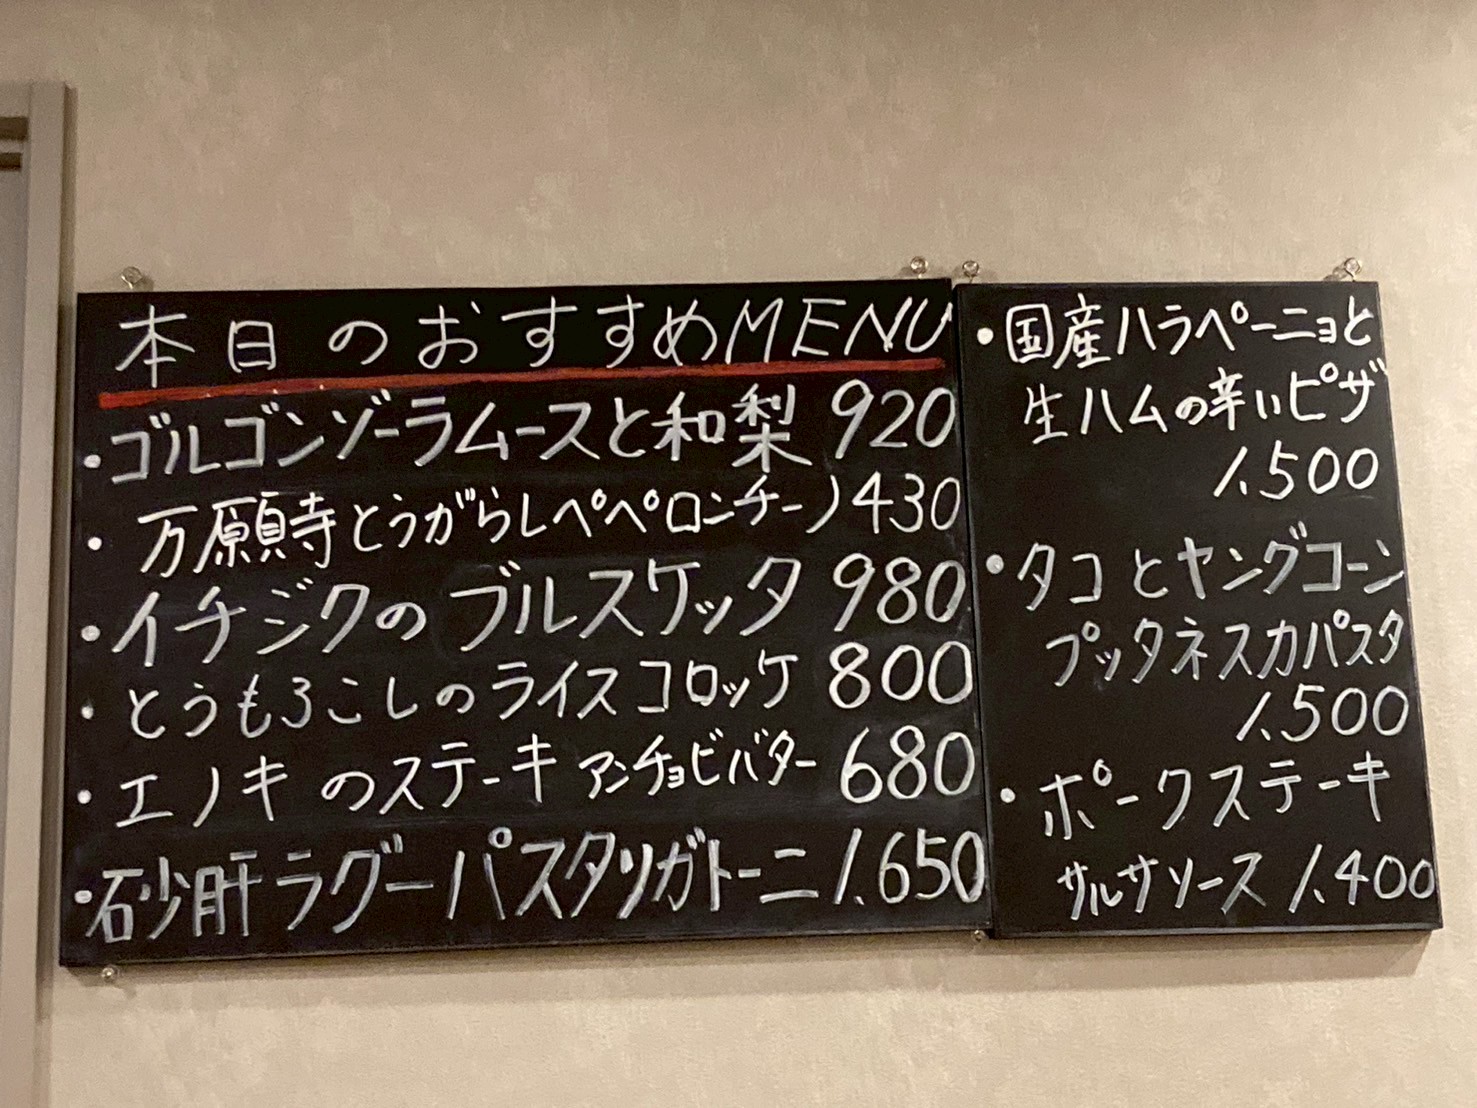 本日のおすすめMENU
・ゴルゴンゾーラムースと和梨 920
・万願寺とうがらしペペロンチーノ 430
・イチジクのブルスケッタ 980
・とうもろこしのライスコロッケ 800
・エノキのステーキアンチョビバター 680
・砂肝ラグーパスタリガトーニ 1.650
・国産ハラペーニョと
生ハムの辛いピザ
1.500
・タコとヤングコーン
プッタネスカパスタ
1.500
・ポークステーキ
サルサソース 1.400